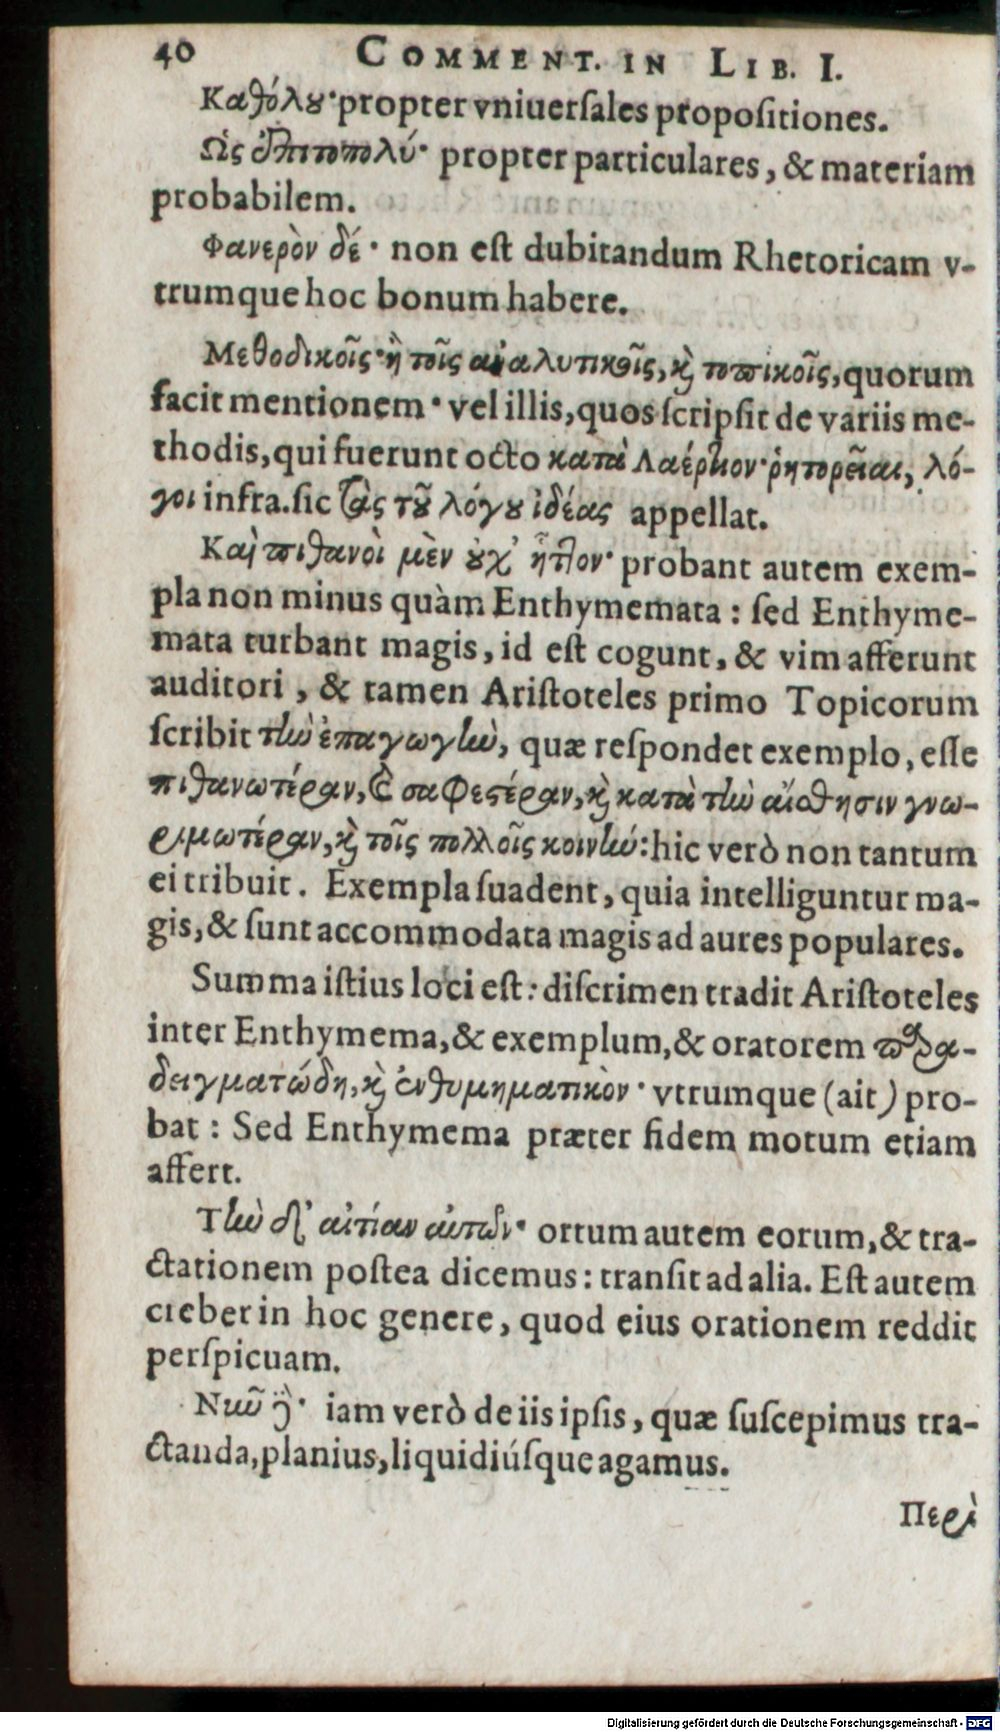 40 COMMENT. IN LIB. I.
Καθόλου· propter vniuersales propositiones.
Ὡς ἐπιτοπολύ· propter particulares, & materiam
probabilem.
Φανερὸν δέ· non est dubitandum Rhetoricam v-
trumque hoc bonum habere.
Μεθοδικοῖς· ἢ τοῖς ἀναλυτικοῖς, καὶ τοπικοῖς, quorum
facit mentionem· vel illis, quos scripsit de variis me-
thodis, qui fuerunt octo κατὰ Λαέρτιον· ῥητορεῖαι, λό-
γοι infra. sic τὰς τοῦ λόγου ἰδέας appellat.
Καὶ πιθανοὶ μὲν οὐχ' ἧττον· probant autem exem-
pla non minus quàm Enthymemata : sed Enthyme-
mata turbant magis, id est cogunt, & vim afferunt
auditori, & tamen Aristoteles primo Topicorum
scribit τὴν ἐπαγωγὴν, quæ respondet exemplo, esse
πιθανωτέραν, καὶ σαφεστέραν, καὶ κατὰ τὴν αἴσθησιν γνω-
ριμωτέραν, καὶ τοῖς πολλοῖς κοινήν: hic verò non tantum
ei tribuit. Exempla suadent, quia intelliguntur ma-
gis, & sunt accommodata magis ad aures populares.
Summa istius loci est: discrimen tradit Aristoteles
inter Enthymema, & exemplum, & oratorem παρα-
δειγματώδη, καὶ ἐνθυμηματικὸν· vtrumque (ait) pro-
bat : Sed Enthymema præter fidem motum etiam
affert.
Τὴν δ' αἰτίαν αὐτῶν· ortum autem eorum, & tra-
ctationem postea dicemus: transit ad alia. Est autem
creber in hoc genere, quod eius orationem reddit
perspicuam.
Νῦν δὲ· iam verò de iis ipsis, quæ suscepimus tra-
ctanda, planius, liquidiúsque agamus.
Περὶ
Digitalisierung gefördert durch die Deutsche Forschungsgemeinschaft - DFG